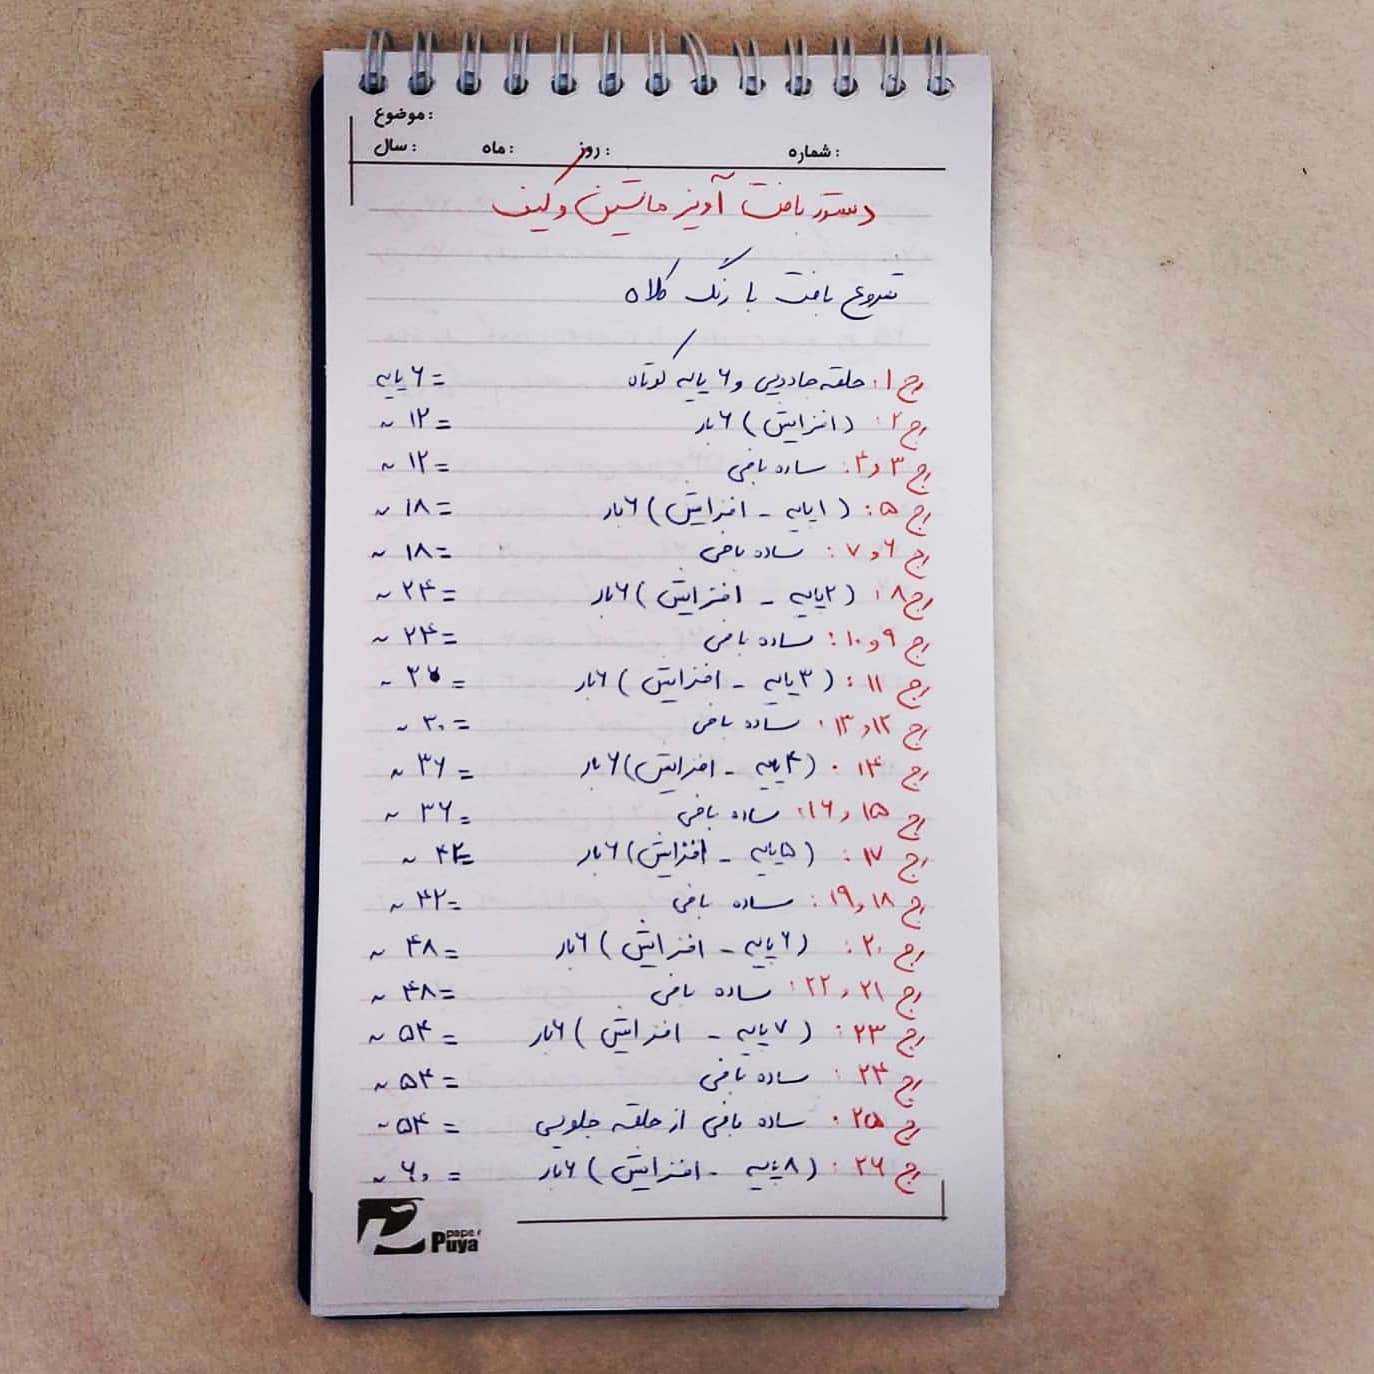 موضوع :
شماره : روز : ماه : سال :
دستور بافت آویز ماشین و کیف
شروع بافت با رنگ کلاه
رج ۱ : حلقه جادویی و ۶ پایه کوتاه = ۶ پایه
رج ۲ : ( افزایش ) ۶ بار = ۱۲ ~
رج ۳ و ۴ : ساده بافی = ۱۲ ~
رج ۵ : ( ۱ پایه - افزایش ) ۶ بار = ۱۸ ~
رج ۶ و ۷ : ساده بافی = ۱۸ ~
رج ۸ : ( ۲ پایه - افزایش ) ۶ بار = ۲۴ ~
رج ۹ و ۱۰ : ساده بافی = ۲۴ ~
رج ۱۱ : ( ۳ پایه - افزایش ) ۶ بار = ۳۰ ~
رج ۱۲ و ۱۳ : ساده بافی = ۳۰ ~
رج ۱۴ : ( ۴ پایه - افزایش ) ۶ بار = ۳۶ ~
رج ۱۵ و ۱۶ : ساده بافی = ۳۶ ~
رج ۱۷ : ( ۵ پایه - افزایش ) ۶ بار = ۴۲ ~
رج ۱۸ و ۱۹ : ساده بافی = ۴۲ ~
رج ۲۰ : ( ۶ پایه - افزایش ) ۶ بار = ۴۸ ~
رج ۲۱ و ۲۲ : ساده بافی = ۴۸ ~
رج ۲۳ : ( ۷ پایه - افزایش ) ۶ بار = ۵۴ ~
رج ۲۴ : ساده بافی = ۵۴ ~
رج ۲۵ : ساده بافی از حلقه جلویی = ۵۴ ~
رج ۲۶ : ( ۸ پایه - افزایش ) ۶ بار = ۶۰ ~
paper
Puya